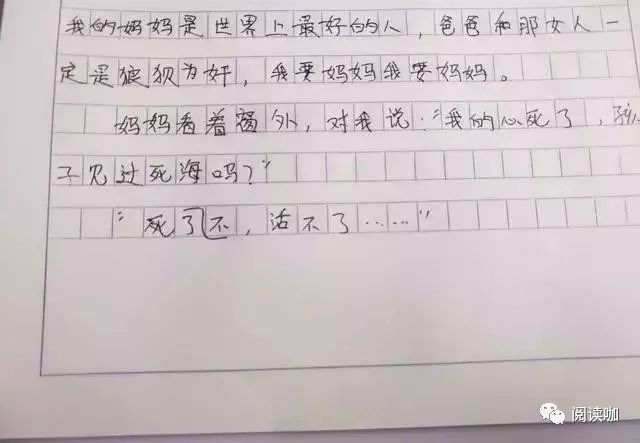 我的妈妈是世界上最好的人，爸爸和那女人一
定是狼狈为奸，我要妈妈我要妈妈。
妈妈看着窗外，对我说："我的心死了，孩
子见过死海吗？"
"死了不，活不了……"
阅读咖